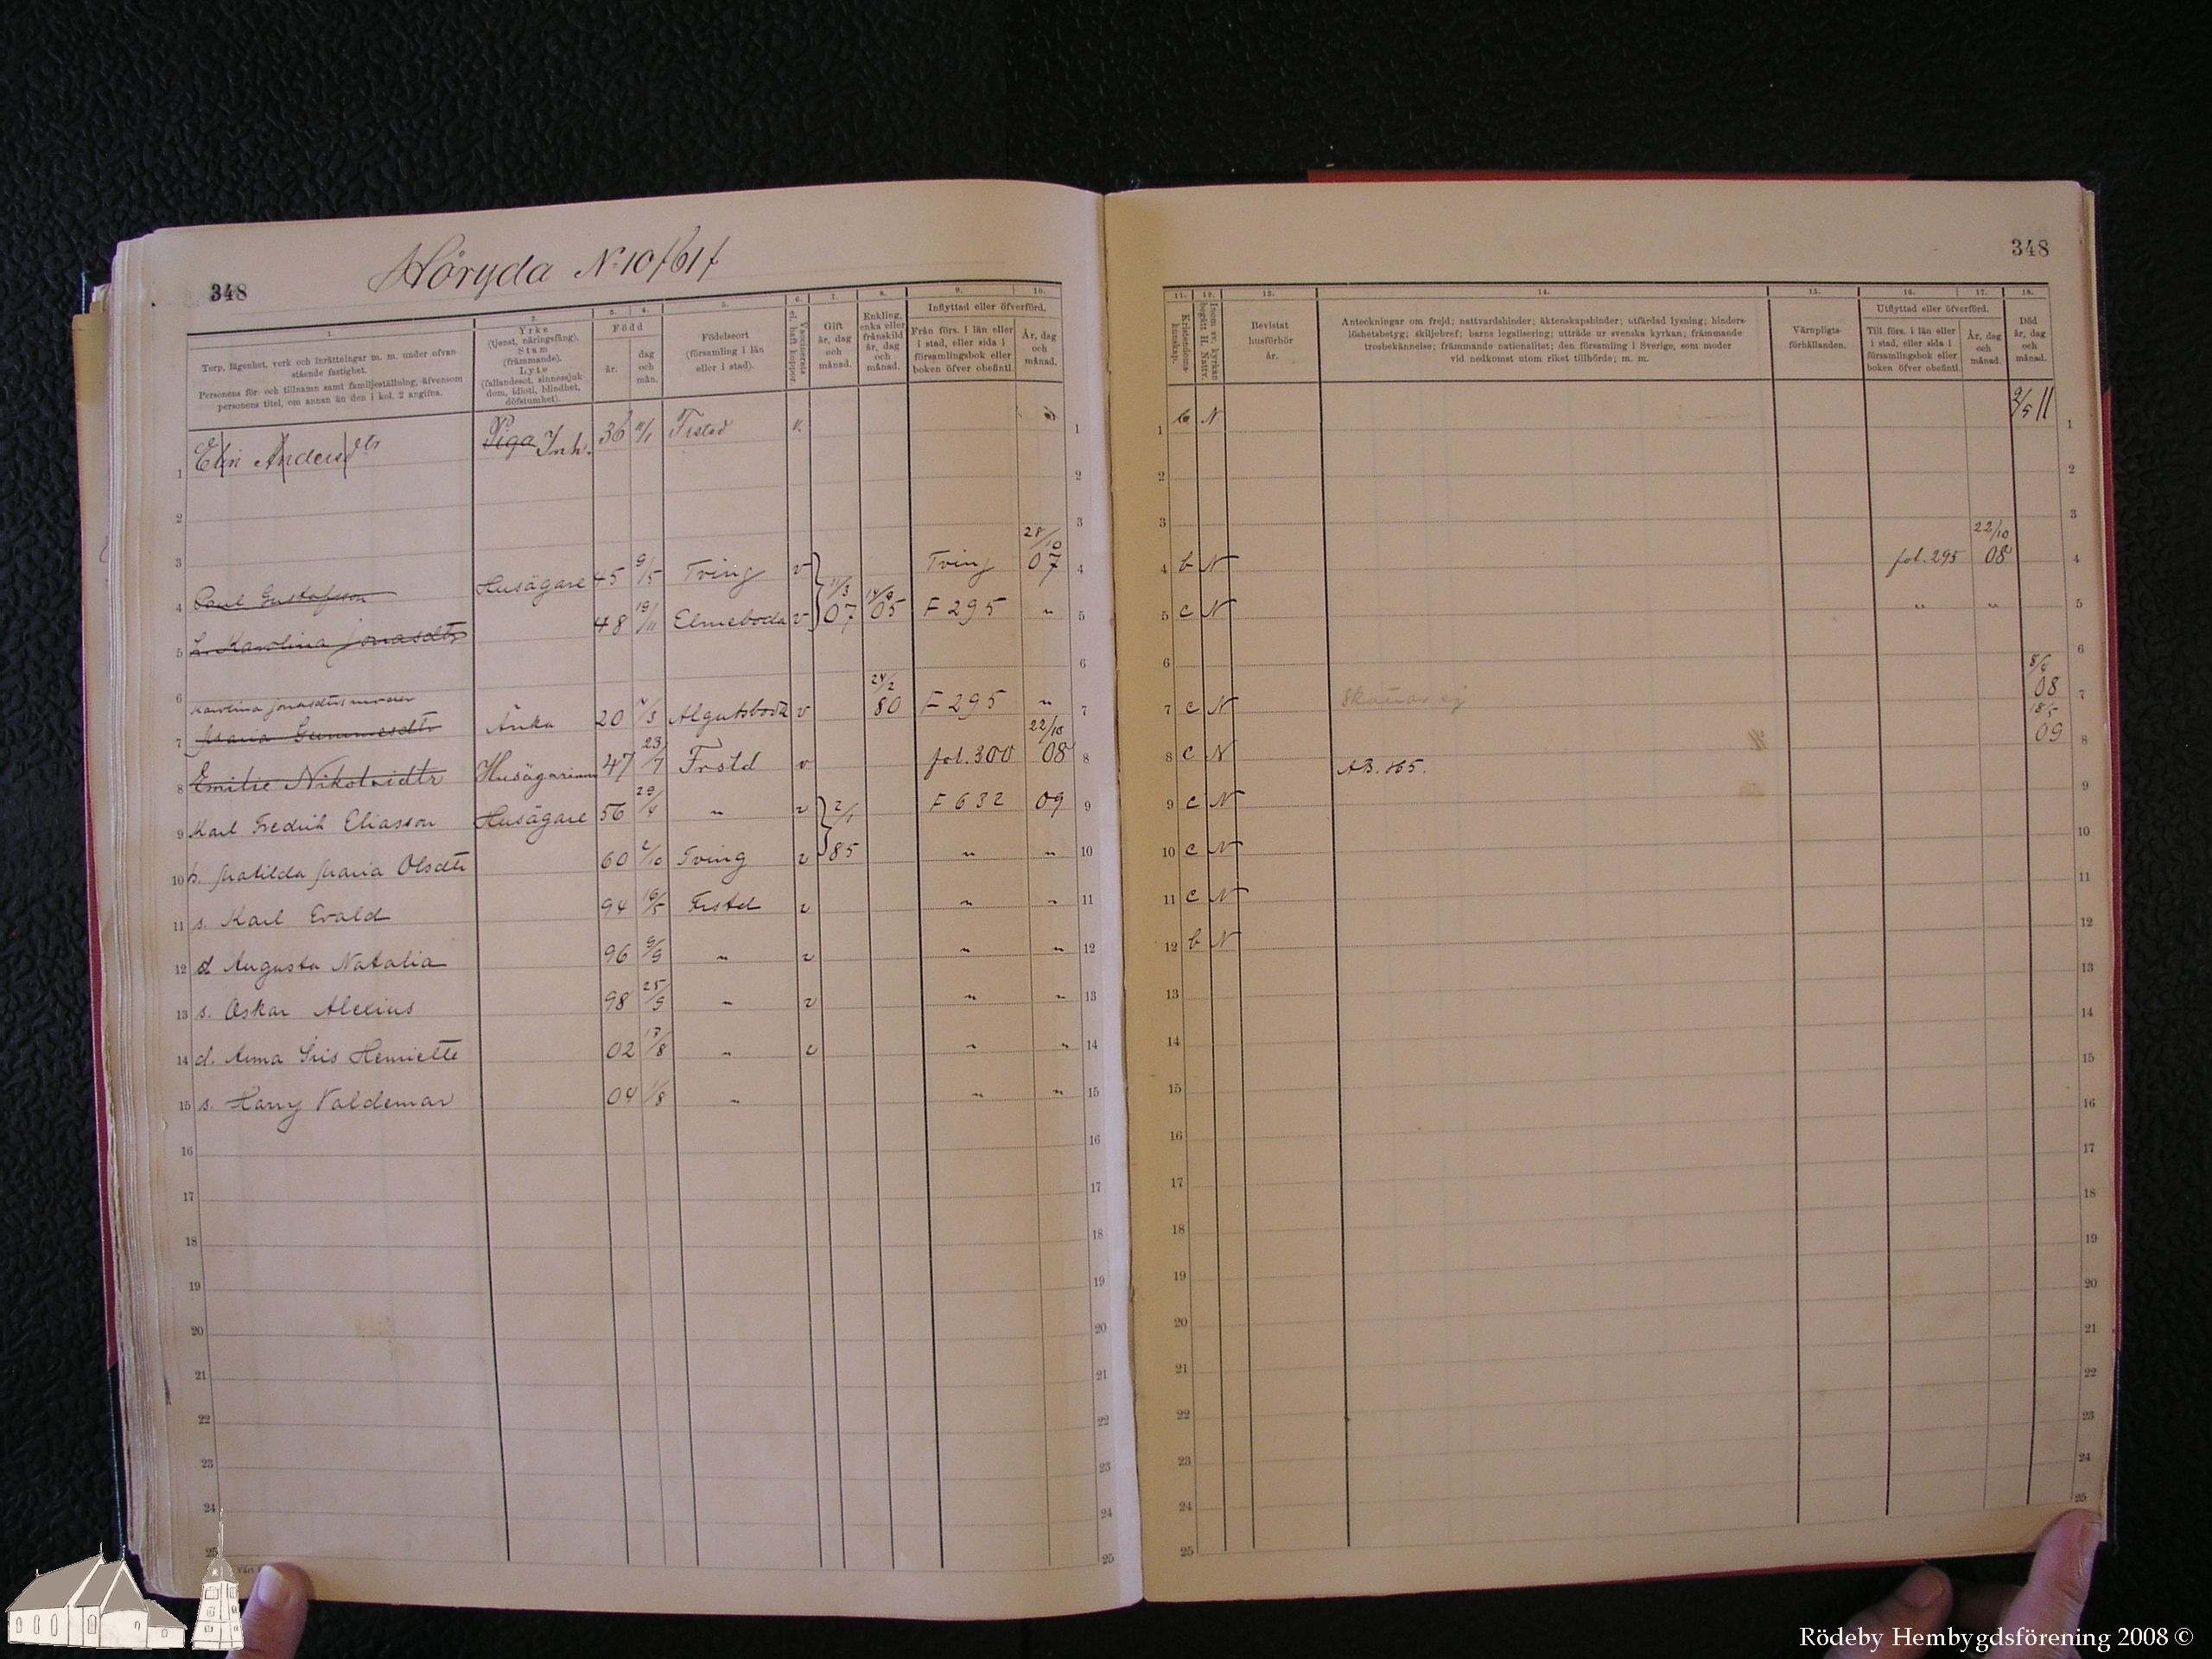 348
Höryda N:10 /61/
348
1.
Torp, lägenhet, verk och inrättningar m. m. under ofvan
stående fastighet.
Personens för- och tillnamn samt familjeställning, äfvensom
personens titel, om annan än den i kol. 2 angifna.
2.
Yrke
(tjenst, näringsfång).
Stam
(främmande).
Lyte
(fallandesot, sinnessjuk-
dom, idioti, blindhet,
döfstumhet).
3. 4.
Född
år.
dag
och
mån.
5.
Födelseort
(församling i län
eller i stad).
6.
Vaccinerats
el. haft koppor.
7.
Gift
år, dag
och
månad.
8.
Enkling,
enka eller
frånskild
år, dag
och
månad.
9. 10.
Inflyttad eller öfverförd.
Från förs. i län eller
i stad, eller sida i
församlingsbok eller
boken öfver obefintl.
År, dag
och
månad.
11.
Kristendoms-
kunskap.
12.
Inom sv. kyrkan
begått H. Nattv.
13.
Bevistat
husförhör
år.
14.
Anteckningar om frejd; nattvardshinder; äktenskapshinder; utfärdad lysning; hinders-
löshetsbetyg; skiljobref; barns legalisering; utträde ur svenska kyrkan; främmande
trosbekännelse; främmande nationalitet; den församling i Sverige, som moder
vid nedkomst utom riket tillhörde; m. m.
15.
Värnpligts-
förhållanden.
16. 17.
Utflyttad eller öfverförd.
Till förs. i län eller
i stad, eller sida i
församlingsbok eller
boken öfver obefintl.
År, dag
och
månad.
18.
Död
år, dag
och
månad.
1 Elin Andersdtr Piga Inh. 36 11/1 Frstd v. 1 N 9/5 11
2
3
4 Paul Gustafsson Husägare 45 9/5 Tving v 11/3 07 Tving 28/10 07 4 b N fol. 295 22/10 08
5 h. Karolina Jonasdtr 48 19/11 Elmeboda v 05 F 295 " 5 c N " "
6 Karolina Jonasdtrs moder
7 Maria Gummesdtr Änka 20 Algutsboda v 24/2 80 F 295 " 7 c N 08
8 Emilie Nikolaidtr Husägarinna 47 23/7 Frstd v fol. 300 22/10 08 8 c N AB. 165. 18/5 09
9 Karl Fredrik Eliasson Husägare 56 29/4 " v 2/1 85 F 632 09 9 c N
10 h. Matilda Maria Olsdtr 60 2/10 Tving v " " 10 c N
11 s. Karl Evald 94 16/5 Frstd v " " 11 c N
12 d Augusta Natalia 96 9/9 " v " " 12 b N
13 s. Oskar Alexius 98 25/9 " v " " 13
14 d. Anna Iris Henriette 02 17/8 " v " " 14
15 s. Harry Valdemar 04 1/8 " " " 15
16
17
18
19
20
21
22
23
24
25
Rödeby Hembygdsförening 2008 ©